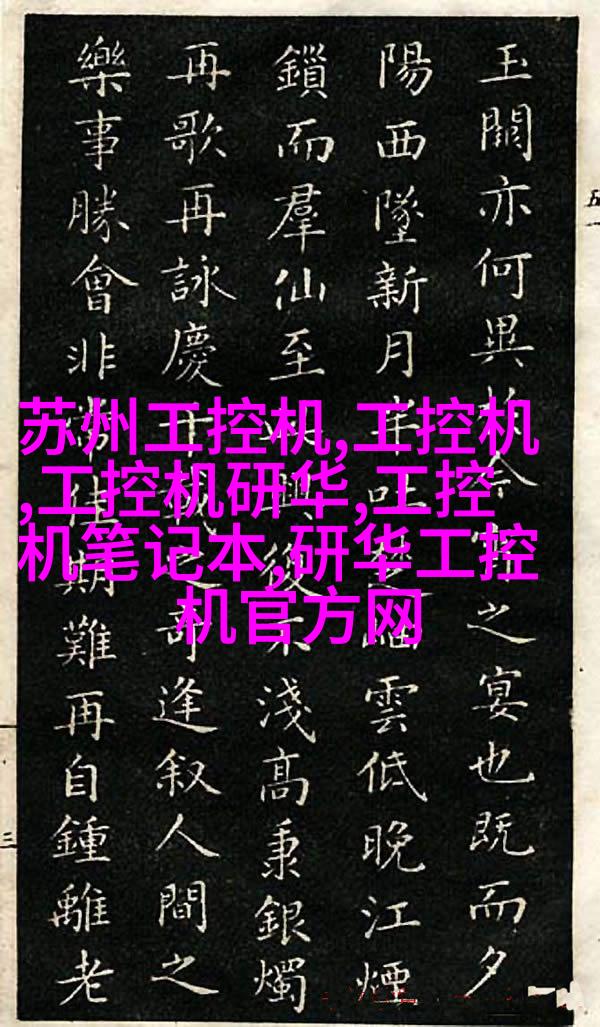 玉闕亦何異於今宵之宴也既而夕
陽西墜新月半吐岫雲低晚江煙
鎖而羣仙至此興復不淺高秉銀燭
再歌再詠慶千載之奇逢叙人間之
樂事勝會非佳期難再自鍾離老
苏州工控机,工控机
,工控机研华,工控
机笔记本,研华工控
机官方网